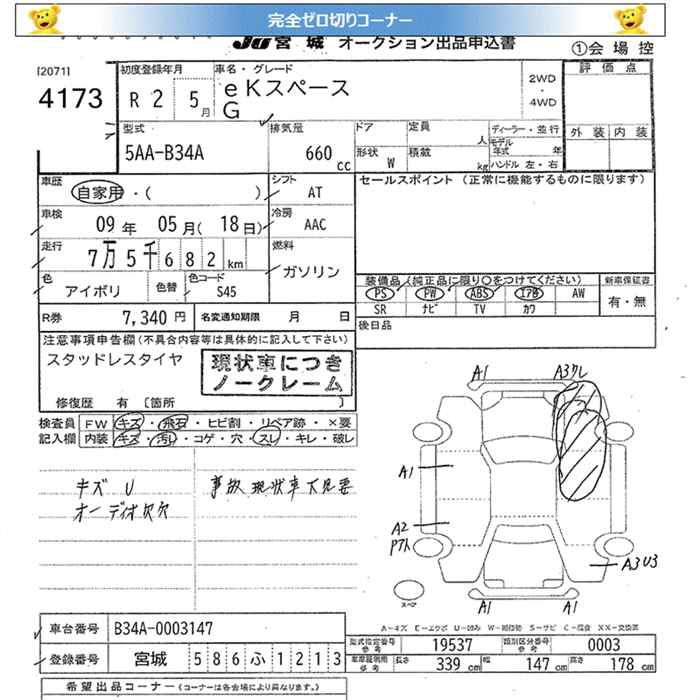 完全ゼロ切りコーナー
JU 宮城 オークション出品申込書
①会場控
[2071]
4173
初度登録年月
R 2 5月
車名・グレード
eKスペース
G
2WD
・
4WD
評価点
外装 内装
型式
5AA-B34A
排気量
660 cc
ドア 定員 人
形状 W 積載 kg
ディーラー・並行
モデル年式 年
ハンドル 左・右
車歴
自家用・( )
シフト
AT
セールスポイント (正常に機能するものに限ります)
車検
09年 05月(18日)
冷房
AAC
走行
7万5千682km
燃料
ガソリン
色
アイボリ
色替
色コード
S45
装備品(純正品に限り○をつけてください)
新車保証書
PS PW ABS エアB AW
SR ナビ TV カワ
有・無
R券 7,340円
名変通知期限 月 日
後日品
注意事項申告欄(不具合内容等は具体的に記入して下さい)
スタッドレスタイヤ
現状車につき
ノークレーム
修復歴 有 〔箇所 〕
検査員
記入欄
FW キズ・飛石・ヒビ割・リペア跡・×要
内装 キズ・汚レ・コゲ・穴・スレ・キレ・破レ
キズ U
オーディオ欠欠
事故現状車下見要
A1
A3クレ
A1
A2
Pアト
A3U3
A1
A1
スペア
A-キズ E-エクボ U-凹み W-補修物 S-サビ C-腐食 XX-交換済
車台番号 B34A-0003147
登録番号 宮城 586ふ1213
型式指定番号 参考 19537
類別区分番号 参考 0003
車庫証明用 参考 長さ 339cm 幅 147cm 高さ 178cm
希望出品コーナー (コーナーは各会場により異なります。)